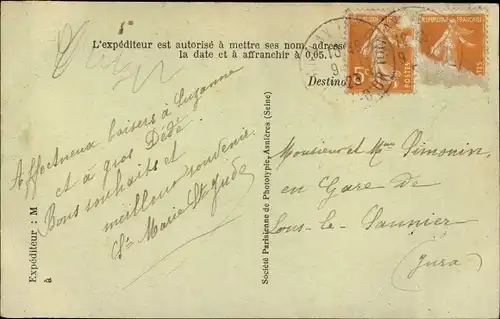 L'expéditeur est autorisé à mettre ses nom, adresse
la date et à affranchir à 0,05.
Affectueux baisers à Suzanne
et à gros Dédé.
Bons souhaits et
meilleur souvenir.
Sr Marie St Jude
Expéditeur : M
à
Société Parisienne de Phototypie, Asnières (Seine)
Destina
REPUBLIQUE FRANÇAISE
5c
POSTES
Monsieur et Mme Simonin,
en Gare de
Lons-le-Saunier
(Jura)